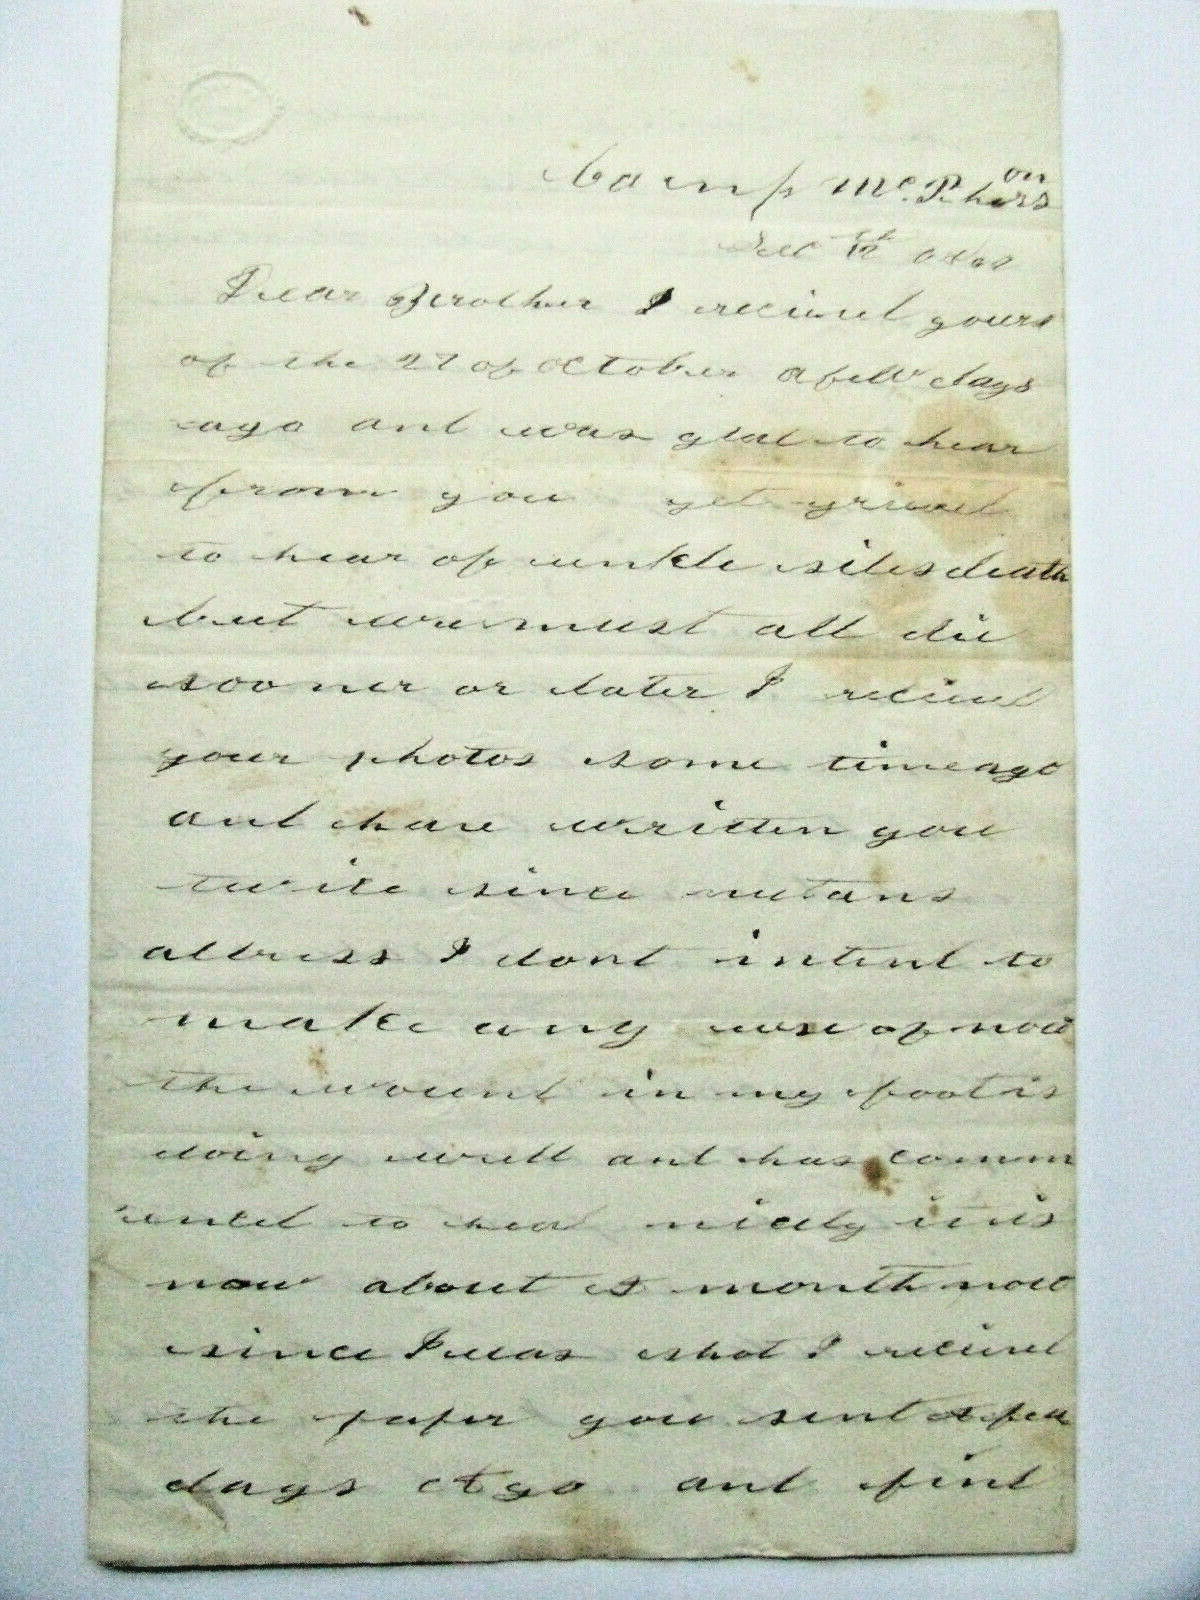 Camp Mc.Pherson
Dec 12th
Dear Brother I recieved yours
of the 27 of October a few days
ago and was glad to hear
from you yet grieved
to hear of unkle siles death
but we must all die
sooner or later I recieved
your photos some time ago
and have written you
twice since
address I dont intend to
make any use of now
the wound in my foot is
doing well and has comm
enced to heal nicely it is
now about a month now
since I was shot I recieved
the paper you sent a few
days Ago and find